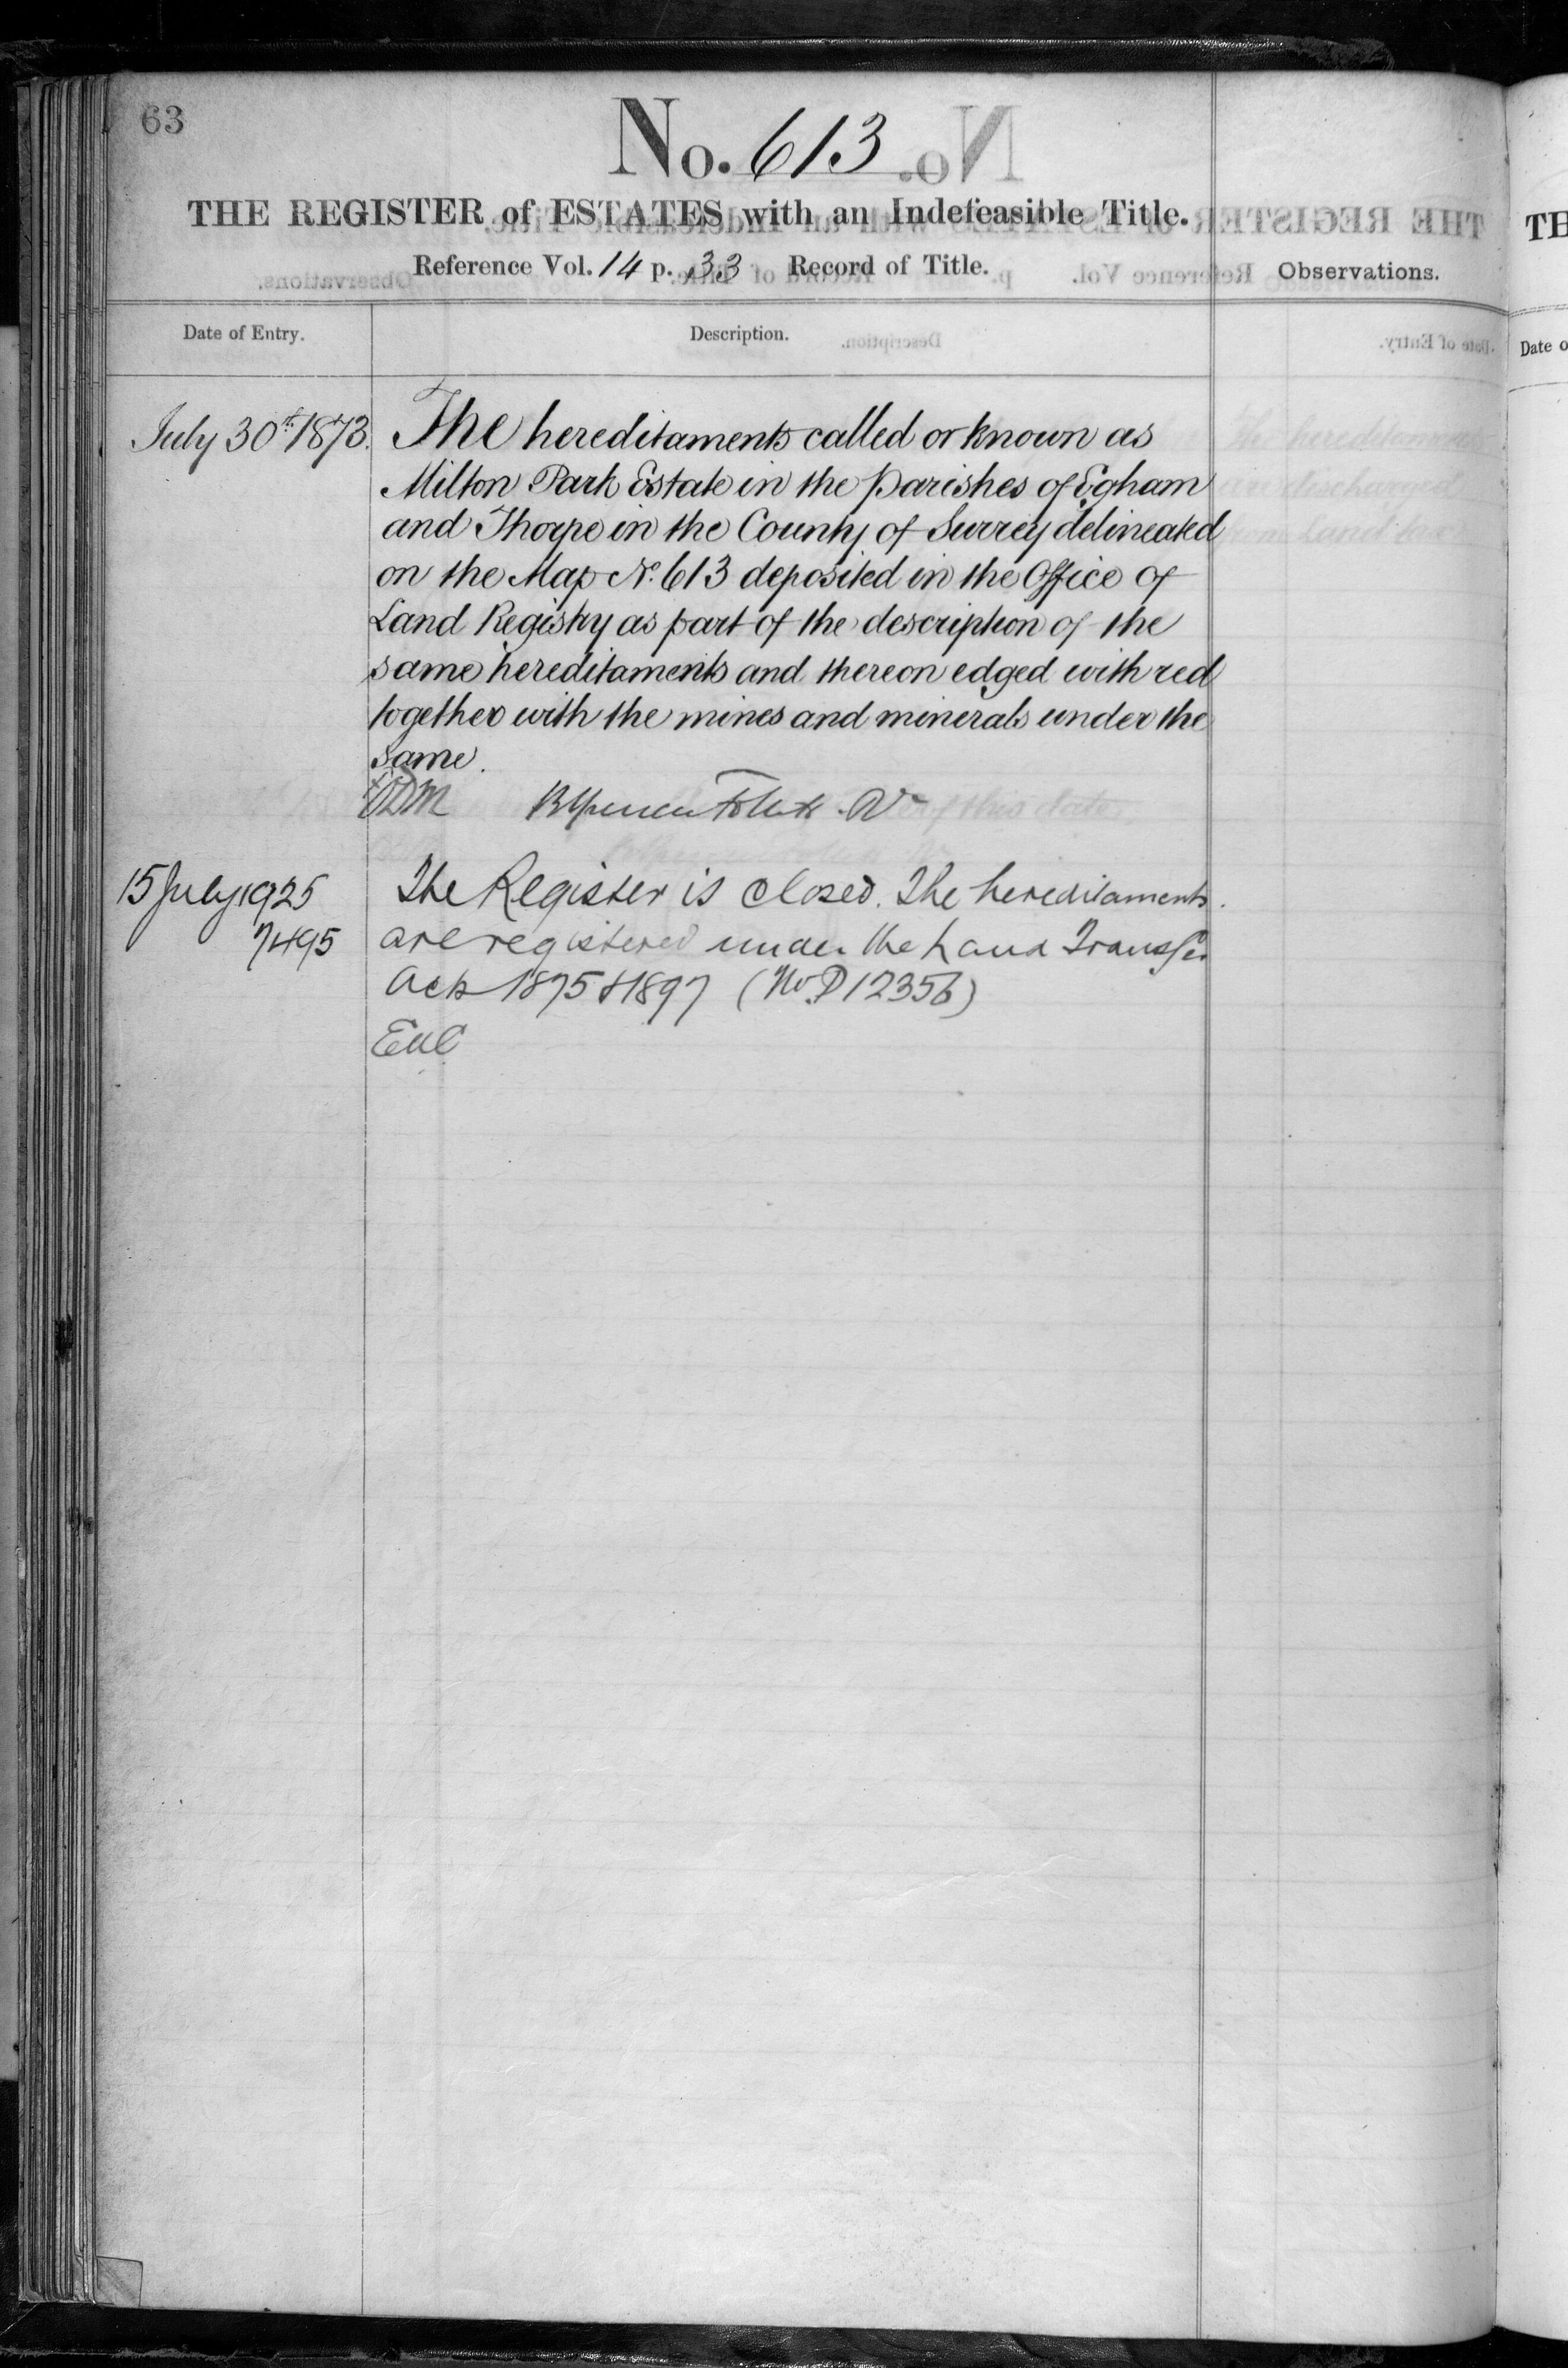 63
No. 613
THE REGISTER of ESTATES with an Indefeasible Title.
Reference Vol. 14 p. 33 Record of Title.
Observations.
Date of Entry.
Description.
July 30th 1873.
The hereditaments called or known as
Milton Park Estate in the Parishes of Egham
and Thorpe in the County of Surrey delineated
on the Map No. 613 deposited in the Office of
Land Registry as part of the description of the
same hereditaments and thereon edged with red
together with the mines and minerals under the
same.
15 July 1925
7495
The Register is closed. The hereditaments
are registered under the Land Transfer
Acts 1875 & 1897 (No. P12356)
TH
Date o